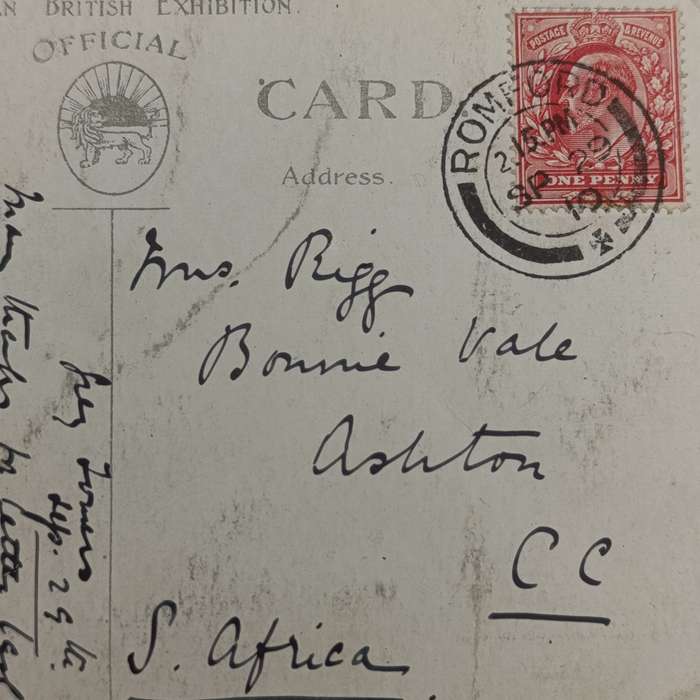 AN BRITISH EXHIBITION.
OFFICIAL
CARD
Address.
POSTAGE & REVENUE
ONE PENNY
ROMFORD
2.15 PM
SP 29
10
Mrs. Rigg
Bonnie Vale
Ashton
C C
S. Africa
Sep. 29th.
Many thanks for letter